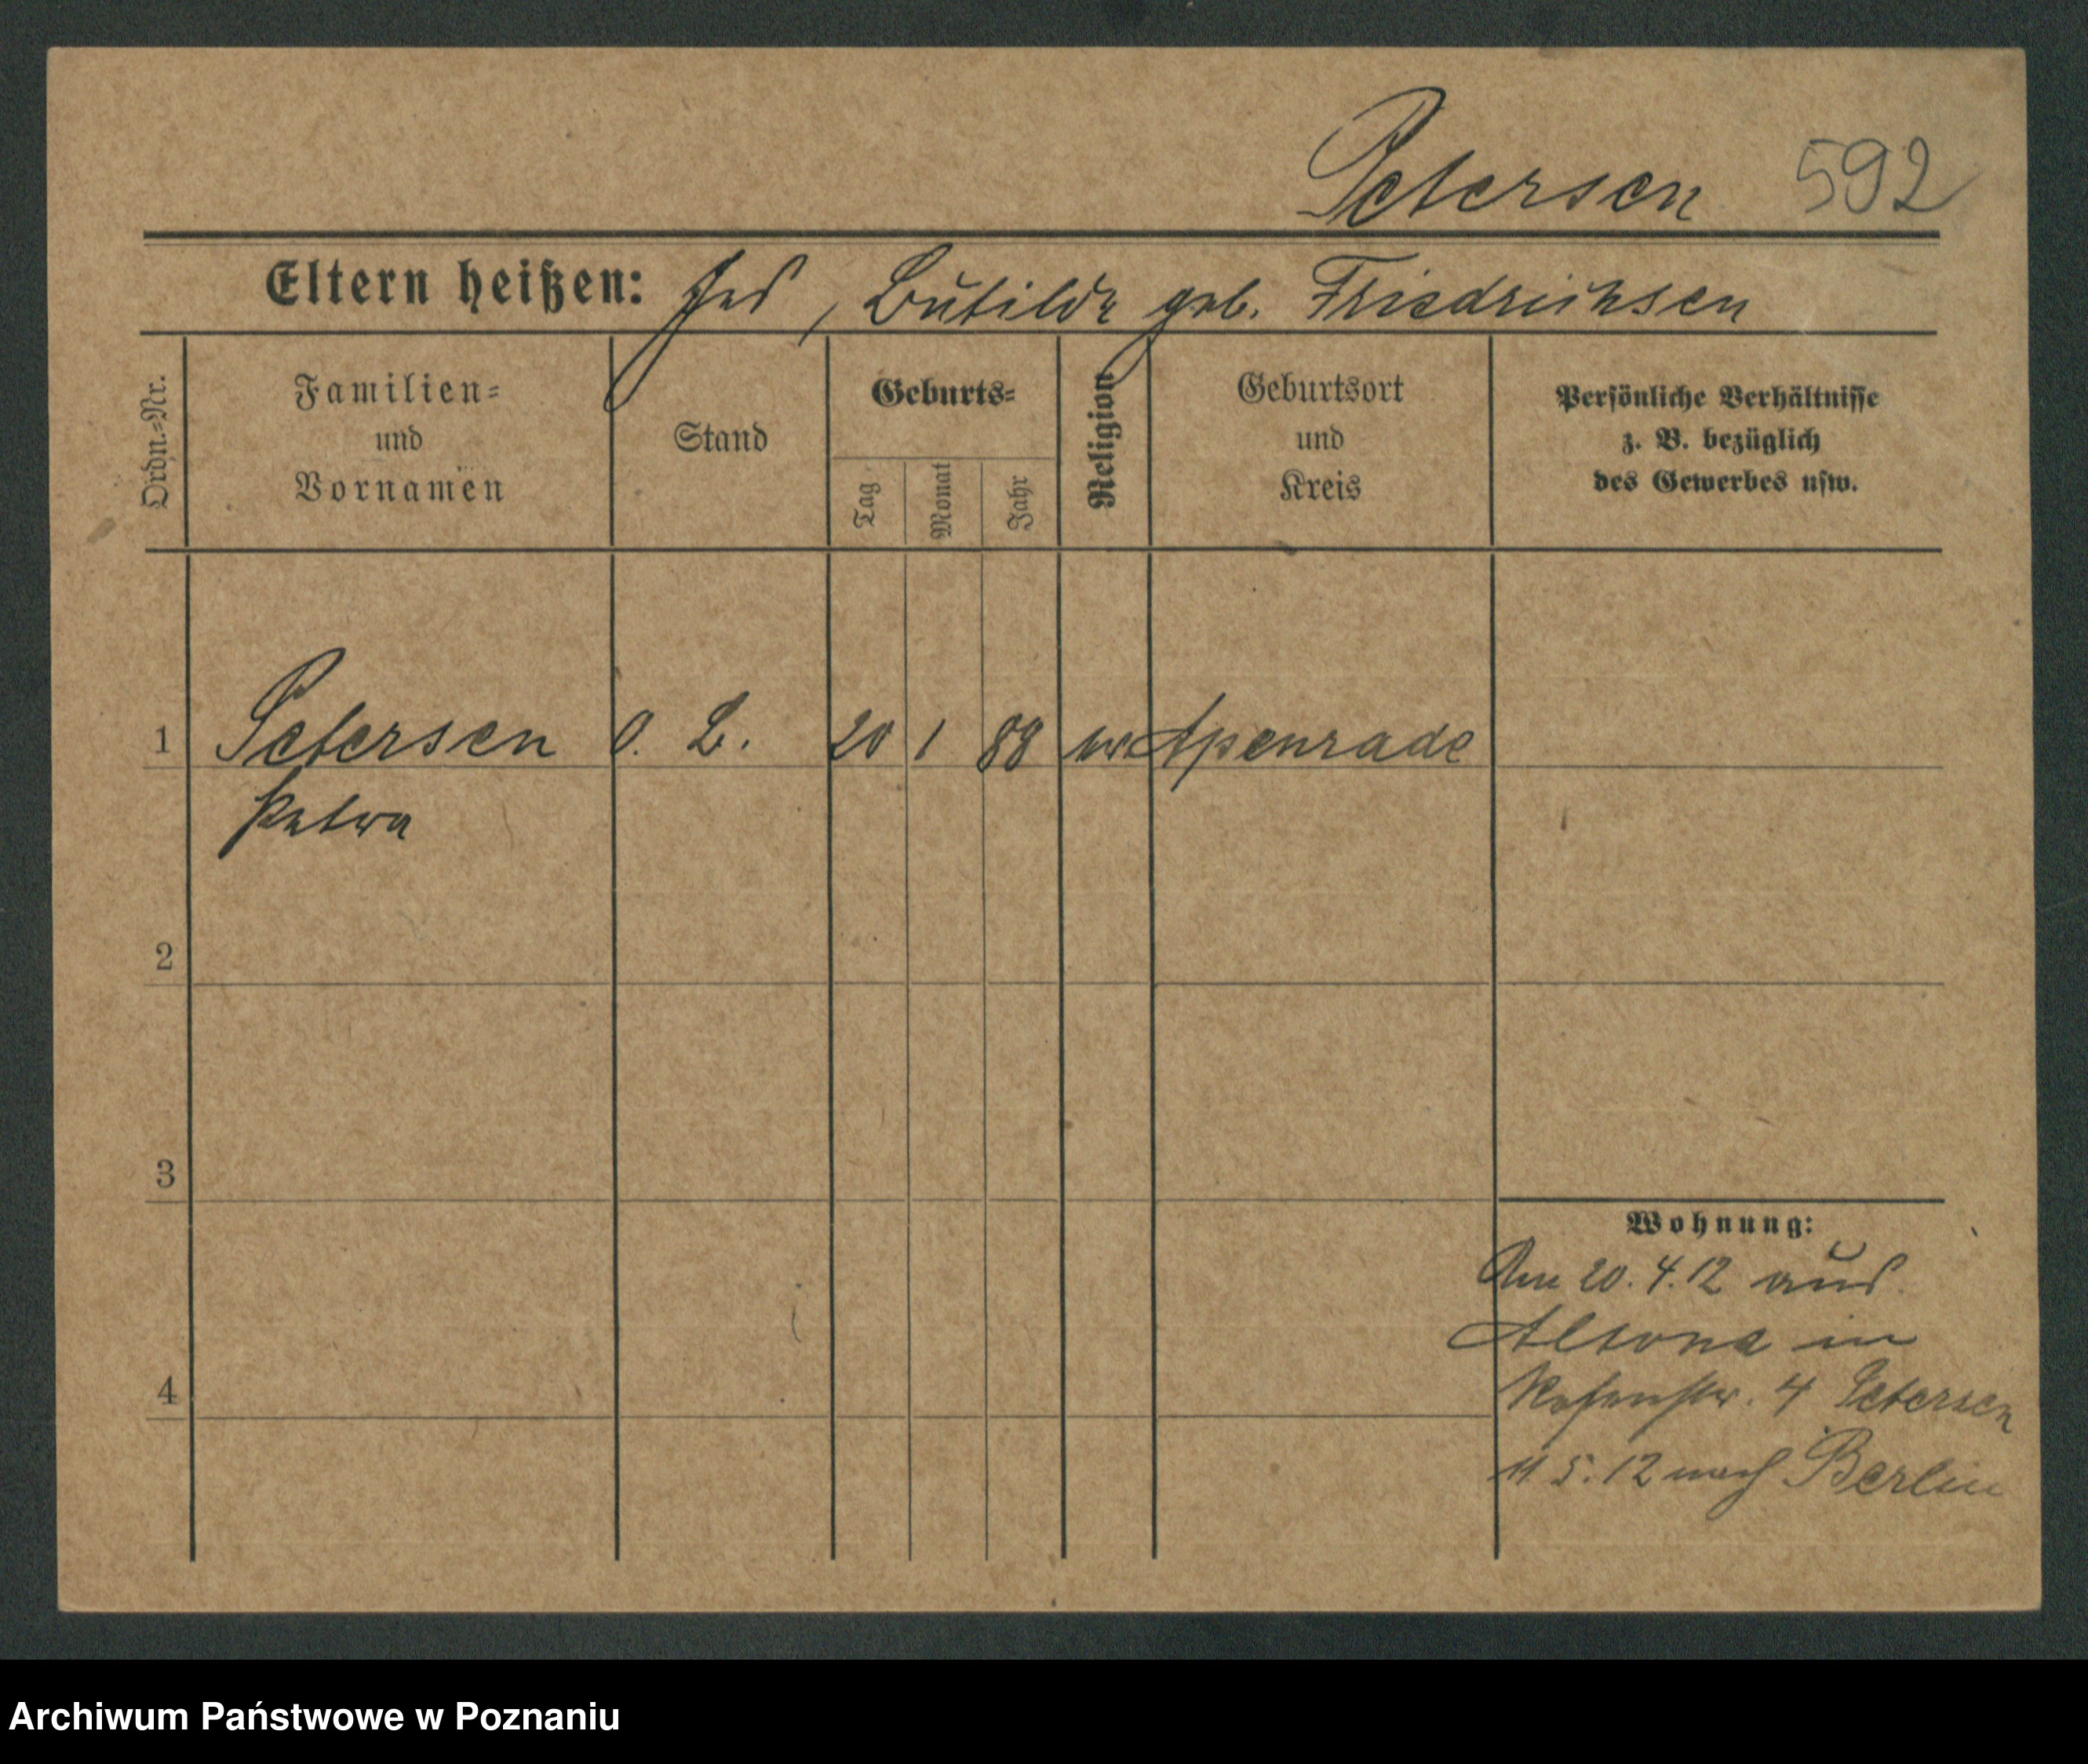 Petersen 592
Eltern heißen: Jes, Butilde geb. Friedrichsen
Ordn.-Nr.
Familien- und Vornamen
Stand
Geburts-
Tag
Monat
Jahr
Religion
Geburtsort und Kreis
Persönliche Verhältnisse
z. B. bezüglich
des Gewerbes usw.
1 Petersen O. L. 20 1 88 Apenrade
Petra
2
3
Wohnung:
Am 20.4.12 aus
Altona in
4
4 Petersen
11 5.12 nach Berlin
Archiwum Państwowe w Poznaniu